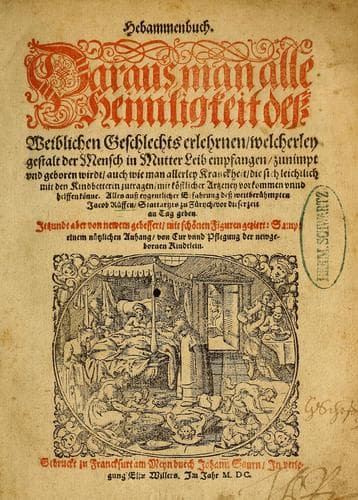 Hebammenbuch.
Daraus man alle
Heimligkeit deß
Weiblichen Geschlechts erlehrnen/welcherley
gestalt der Mensch in Mutter Leib empfangen/zunimpt
vnd geboren wirdt/auch wie man allerley Kranckheit/die sich leichtlich
mit den Kindbetterin zutragen/mit köstlicher Artzeney vorkommen vnnd
helffen könne. Alles auß eygentlicher Erfahrung deß weitberühmpten
Jacob Rüffen/Stattartzts zu Zürych/vor dieser zeit
an Tag geben.
Jetzundt aber von newem gebessert/mit schönen Figuren geziert: Sampt
einem nützlichen Anhang/von Cur vnd Pflegung der newge-
bornen Kindlein.
HERM. SCHWARTZ
Gedruckt zu Franckfurt am Meyn durch Johann Saurn/In verle-
gung Eliæ Willers. Im Jahr M. DC.